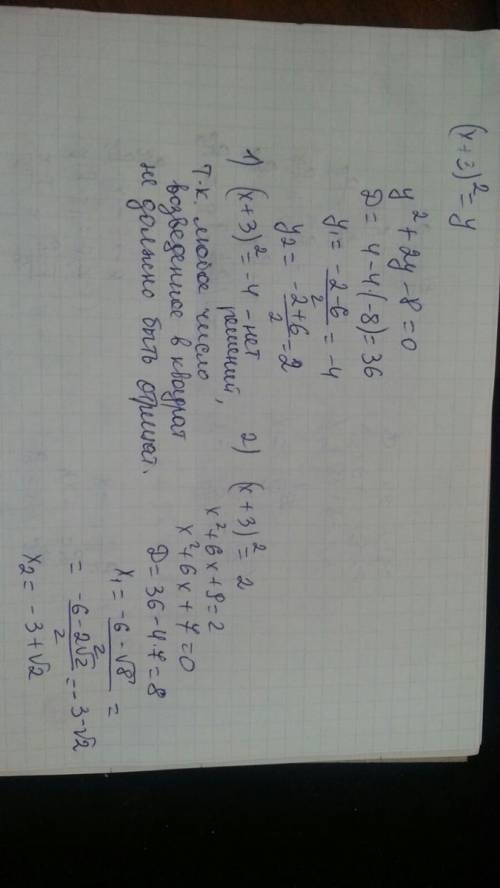 (x+3)² = y
y² + 2y - 8 = 0
D = 4 - 4·(-8) = 36
y₁ = (-2-6)/2 = -4
y₂ = (-2+6)/2 = 2
1) (x+3)² = -4 - нет
решений,
т.к. любое число
возведенное в квадрат
не должно быть отрицат.
2) (x+3)² = 2
x² + 6x + 9 = 2
x² + 6x + 7 = 0
D = 36 - 4·7 = 8
x₁ = (-6 - √8)/2 =
= (-6 - 2√2)/2 = -3 - √2
x₂ = -3 + √2